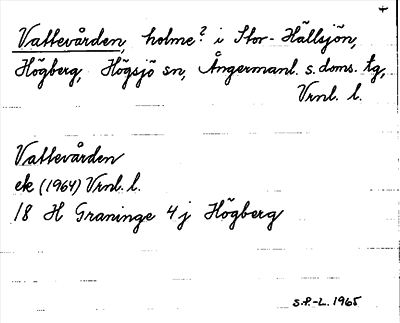 Vattevården, holme? i Stor-Hällsjön,
Högberg, Högsjö sn, Ångermanl. s. doms. tg,
Vrnl. l.
Vattevården
ek (1964) Vrnl. l.
18 H Graninge 4 j Högberg
S.P.-L. 1965